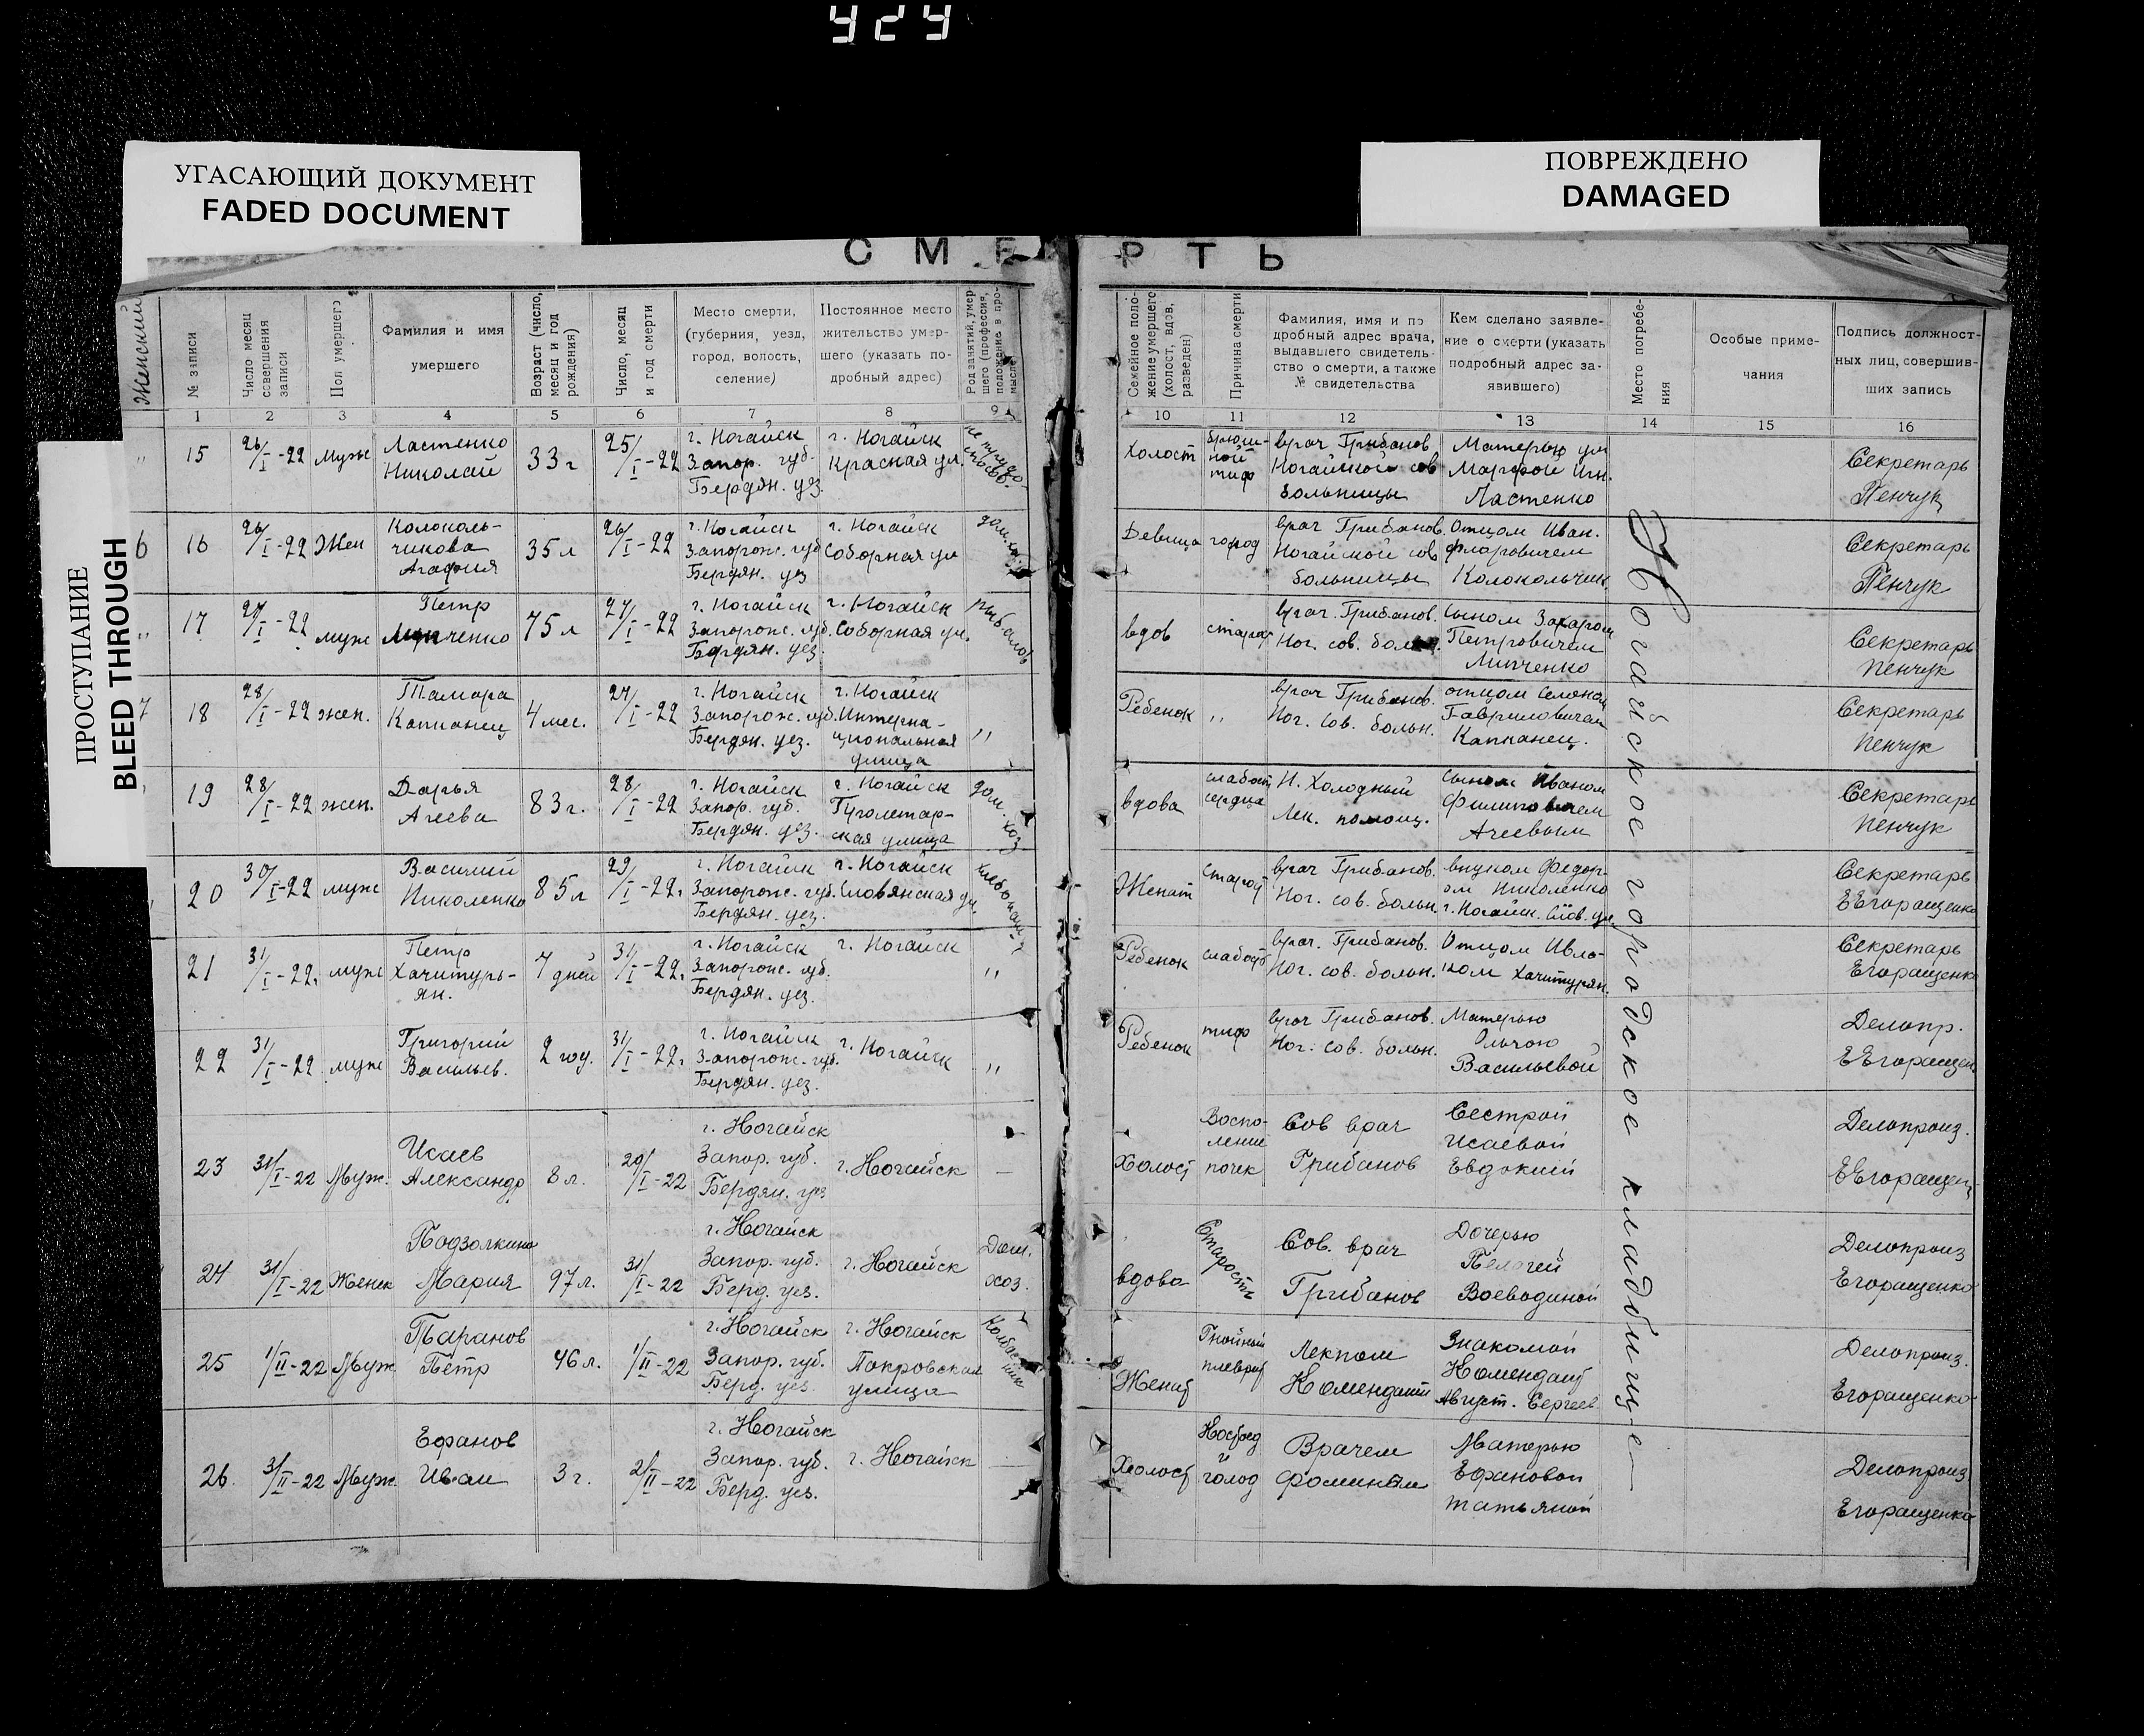 424
УГАСАЮЩИЙ ДОКУМЕНТ
FADED DOCUMENT
ПОВРЕЖДЕНО
DAMAGED
ПРОСТУПАНИЕ
BLEED THROUGH
СМЕРТЬ
Женский
№ записи
Число месяц
совершения
записи
Пол умершего
Фамилия и имя
умершего
Возраст (число,
месяц и год
рождения)
Число, месяц
и год смерти
Место смерти,
(губерния, уезд,
город, волость,
селение)
Постоянное место
жительство умер-
шего (указать по-
дробный адрес)
Род занятий, умер-
шего (профессия,
положение в про-
мысле
Семейное поло-
жение умершего
(холост, вдов,
разведен)
Причина смерти
Фамилия, имя и по
дробный адрес врача,
выдавшего свидетель-
ство о смерти, а также
№ свидетельства
Кем сделано заявле-
ние о смерти (указать
подробный адрес за-
явившего)
Место погребе-
ния
Особые приме-
чания
Подпись должност-
ных лиц, совершив-
ших запись
1 2 3 4 5 6 7 8 9 10 11 12 13 14 15 16
15
26/I-22
муж
Ластенко
Николай
33 г
25/I-22
г. Ногайск
Запор. губ.
Бердян. уез.
г. Ногайск
Красная ул.
Холост
брюш-
ной
тиф
врач Грибанов
Ногайской сов
больницы
Матерью
Марфой Игн.
Ластенко
Секретарь
Пенчук
6
16
26/I-22
Жен
Колоколь-
чикова
Агафия
35 л
26/I-22
г. Ногайск
Запорож. губ
Бердян. уез
г. Ногайск
Соборная ул
Девица
врач Грибанов.
Ногайской сов
больницы
Отцом Иван.
Колокольчик.
Секретарь
Пенчук
17
27/I-22
муж
Петр
75 л
27/I-22
г. Ногайск
Запорож. губ.
Бердян. уез.
г. Ногайск
Соборная ул.
вдов
врач. Грибанов.
Ног. сов.
Сыном Захаром
Петровичем
Секретарь
Пенчук
7
18
28/I-22
жен.
Тамара
Капканец
4 мес.
27/I-22
г. Ногайск
Запорож. губ.
Бердян. уез.
г. Ногайск
Интерна-
циональная
улица
"
Ребенок
"
врач Грибанов.
Ног. сов. больн.
отцом
Гавриловичем
Капканец.
Секретарь
Пенчук
19
28/I-22
жен.
Дарья
Агеева
83 г.
28/I-22
г. Ногайск
Запор. губ.
Бердян. уез.
г. Ногайск
Пролетар-
ская улица
дом. хоз
вдова
слабост
сердца
И. Холодный
Лек. помощ.
Сыном Иваном
Филиповичем
Агеевым
Секретарь
Пенчук
20
30/I-22
муж
Василий
Николенко
85 л
29/I-22.
г. Ногайск
Запорож. губ.
Бердян. уез.
г. Ногайск
Словянская ул.
Женат
Старост
врач Грибанов.
Ног. сов. больн.
внуком Федор-
ом Николенко
г. Ногайск. Слов. ул.
Секретарь
ЕЕгоращенко
21
31/I-22.
муж
Петр
Хачитурь-
ян.
7 дней
31/I-22.
г. Ногайск
Запорож. губ.
Бердян. уез.
г. Ногайск
"
Ребенок
слабост
врач. Грибанов.
Ног. сов. больн.
Отцом
Хачитурян.
Секретарь
Егоращенко
22
31/I-22
муж
Григорий
Васильев.
2 год.
31/I-22.
г. Ногайск
Запорож. губ.
Бердян. уез.
г. Ногайск
"
Ребенок
тиф
врач Грибанов.
Ног. сов. больн.
Матерью
Ольгою
Васильевой
Делопр.
ЕЕгоращен
23
31/I-22
Муж.
Исаев
Александр
8 л.
г. Ногайск
Запор. губ.
Бердян. уез
г. Ногайск
—
Холост
Воспо-
ление
почек
Сов врач
Грибанов
Сестрой
Исаевой
Евдокией
Делопроиз.
ЕЕгоращен
24
31/I-22
Женск
Подзолкина
Мария
97 л.
31/I-22
г. Ногайск
Запор. губ.
Берд. уез.
г. Ногайск
Дом.
хоз.
вдова
Старость
Сов. врач
Грибанов
Дочерью
Пелагей
Воеводиной
Делопроиз
Егоращенко
25
1/II-22
Муж.
Таранов
Петр
46 л.
1/II-22
г. Ногайск
Запор. губ.
Берд. уез.
г. Ногайск
Покровская
улица
Колбасник
Женат
Гнойный
плеврит
Лекпом
Комендант
Знакомой
Комендант
Август. Сергеев
Делопроиз.
Егоращенко
26.
3/II-22
Муж.
Ефанов
Иван
3 г.
2/II-22
г. Ногайск
Запор. губ.
Берд. уез.
г. Ногайск
Холост
голод
Врачем
Матерью
Ефановой
Татьяной
Делопроиз
Егоращенко
Ногайское городское кладбище